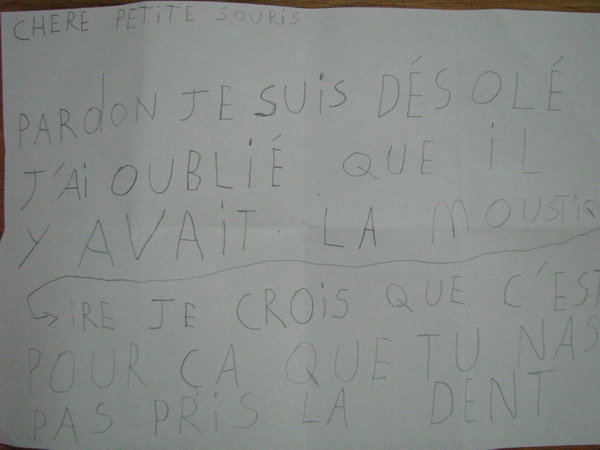 CHERE PETiTE SOURiS
PARdON JE SUiS DÉSOLÉ
J'Ai OUBLiÉ QUE iL
Y AVAiT LA MOUSTiQ
iRE JE CROiS QUE C'EST
POUR ÇA QUE TU NAS
PAS PRiS LA DENT